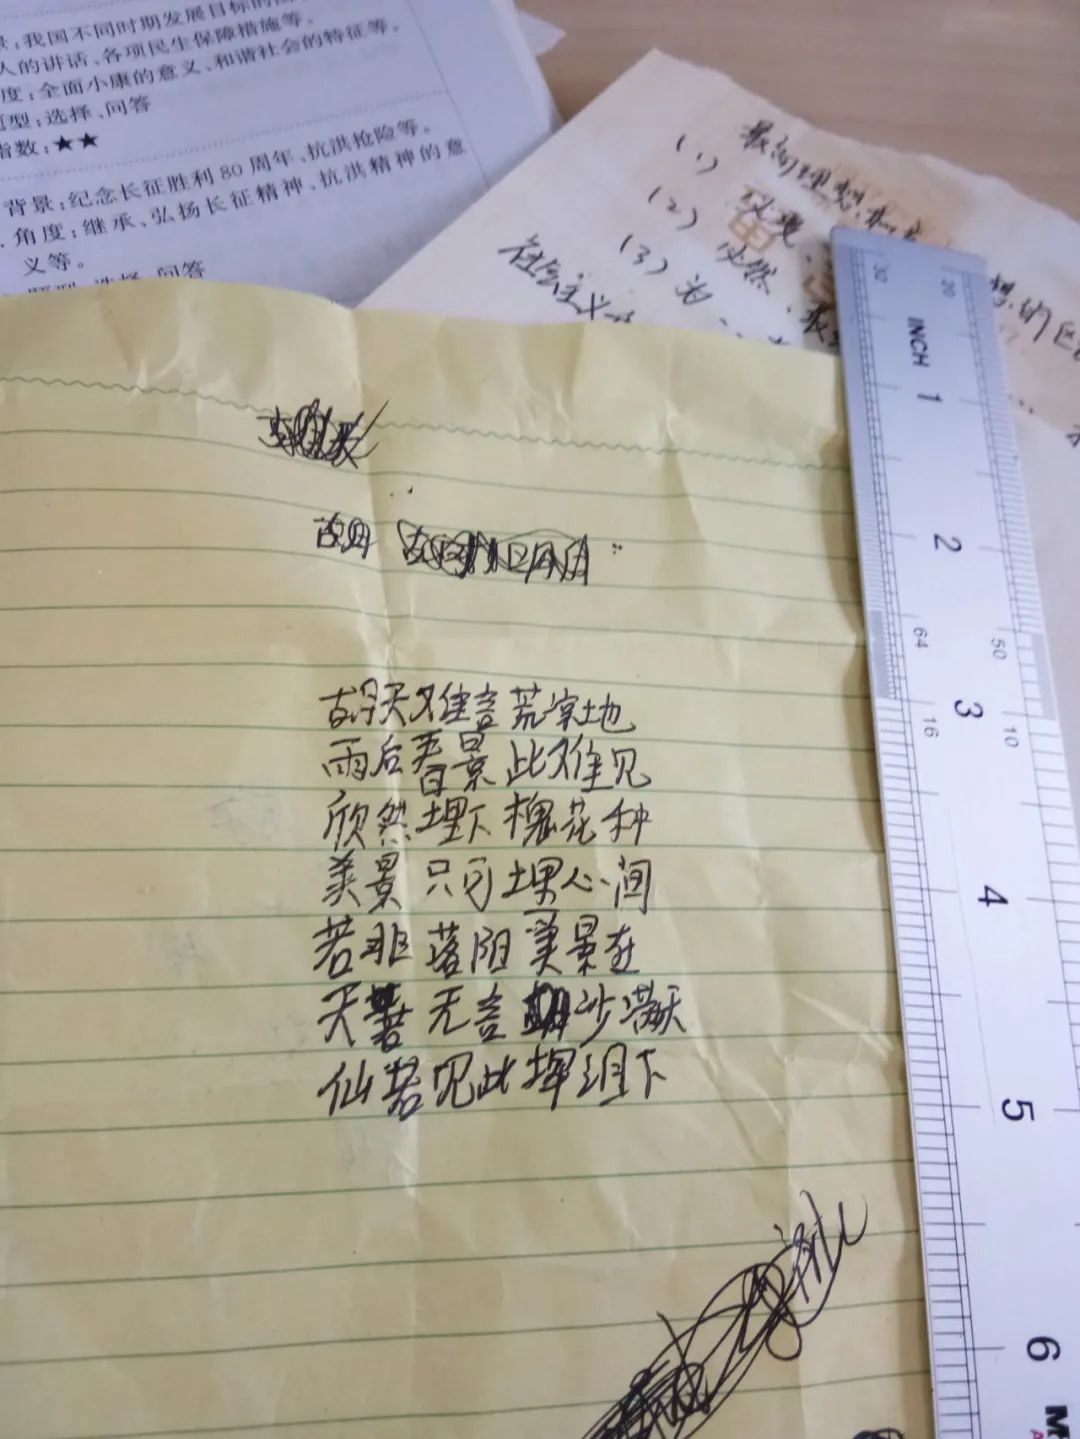 景:我国不同时期发展目标的
人的讲话、各项民生保障措施等。
度:全面小康的意义、和谐社会的特征等。
题型:选择、问答
指数:★★
背景:纪念长征胜利80周年、抗洪抢险等。
角度:继承、弘扬长征精神、抗洪精神的意
义等。
题型:选择、问答
最高理想和
想的区
(1)
(2)
必然
(3)为
社会主义
胡天难言荒凉地
雨后春景此难见
欣然埋下槐花种
美景只可埋心间
若非落阳美景在
天 无言 沙满天
仙若见此挥泪下
30
20
INCH
1
2
64
50
3
16
10
4
5
6
M